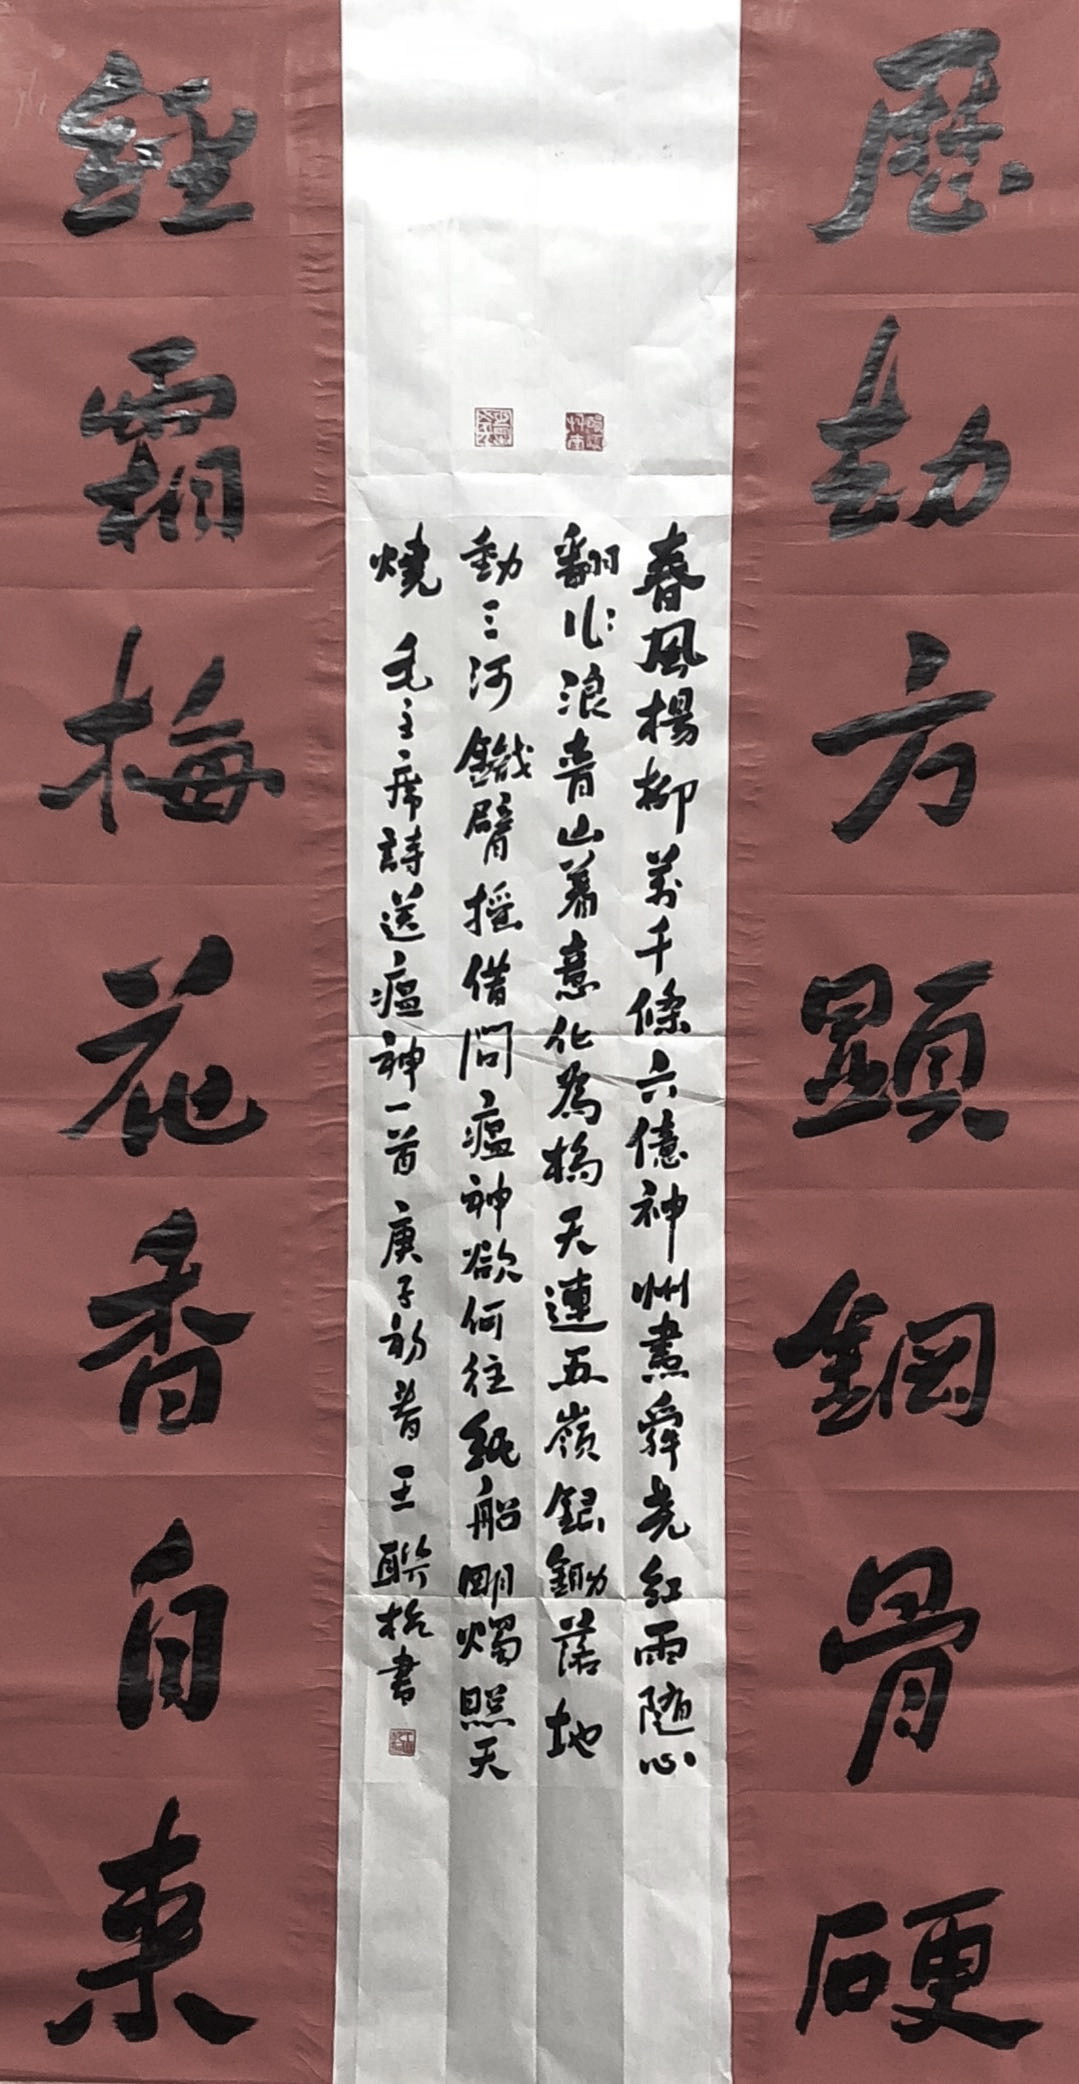 歷劫方顯鋼骨硬
春風楊柳萬千條六億神州盡舜堯紅雨隨心
翻作浪青山著意化為橋天連五嶺銀鋤落地
動三河鐵臂搖借問瘟神欲何往紙船明燭照天
燒 毛主席詩送瘟神一首庚子初春王聯松書
經霜梅花香自來